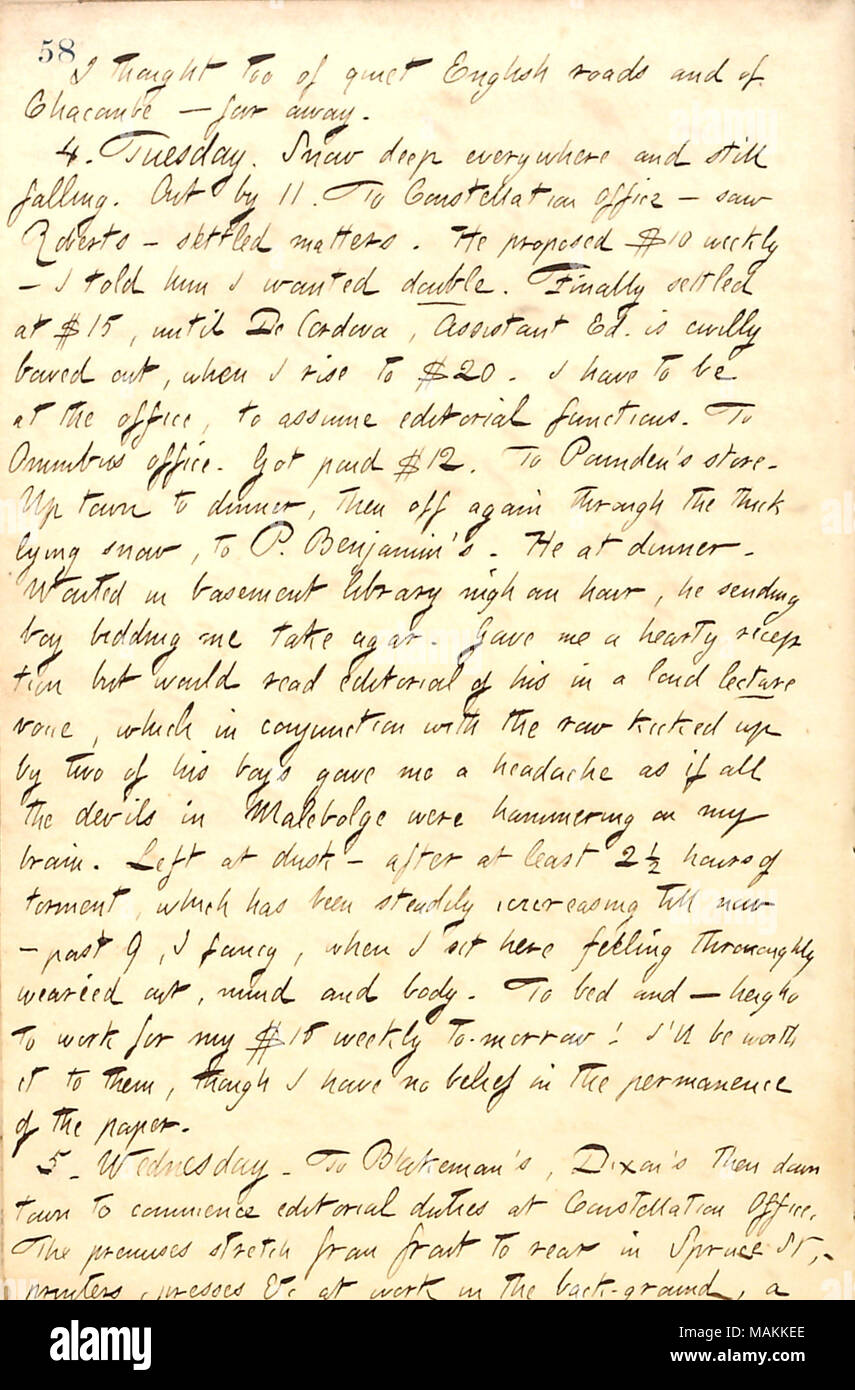 58
I thought too of quiet English roads and of
Chacombe — far away.
4. Tuesday. Snow deep everywhere and still
falling. Out by 11. To Constellation Office — saw
Roberts — settled matters. He proposed $10 weekly
— I told him I wanted double. Finally settled
at $15, until De Cordova, Assistant Ed. is civilly
bowed out, when I rise to $20. I have to be
at the office, to assume editorial functions. To
Omnibus office. Got paid $12. To Pounden's store.
Up town to dinner, then off again through the thick
lying snow, to P. Benjamin's. He at dinner.
Waited in basement library nigh an hour, he sending
boy bidding me take cigar. Gave me a hearty recep
tion but would read editorial of his in a loud lecture
voice, which in conjunction with the row kicked up
by two of his boys gave me a headache as if all
the devils in Malebolge were hammering on my
brain. Left at dusk — after at least 2½ hours of
torment, which has been steadily increasing till now
— past 9, I fancy, when I sit here feeling thoroughly
wearied out, mind and body. To bed and — heigho
to work for my $15 weekly to-morrow! I'll be worth
it to them, though I have no belief in the permanence
of the paper.
5. Wednesday. To Blakeman's, Dixon's then down
town to commence editorial duties at Constellation Office.
The premises stretch from front to rear in Spruce St,
printers, presses &c at work in the back-ground, a
alamy
Image ID: MAKKEE
www.alamy.com